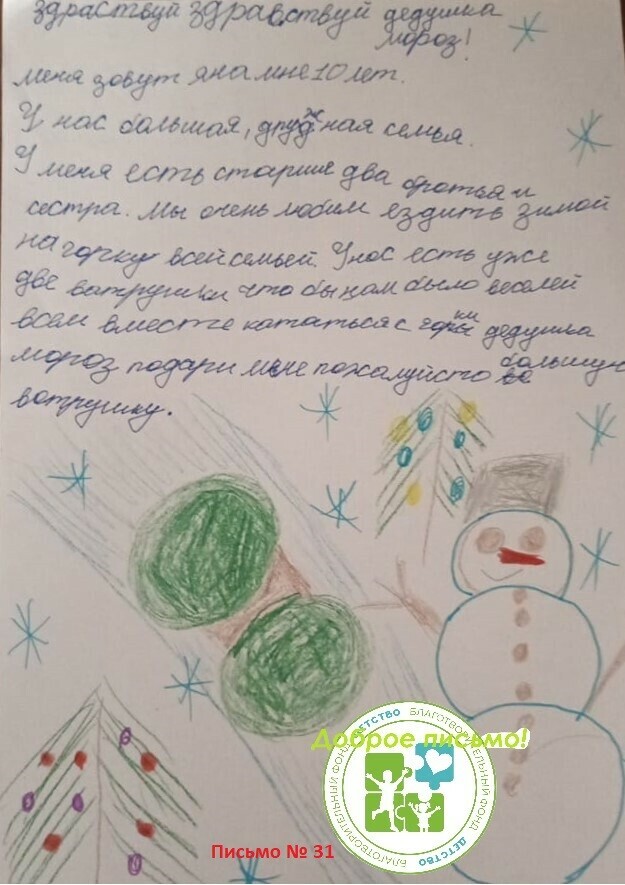 здраствуй здравствуй дедушка
мороз!
меня зовут яна мне 10 лет.
У нас большая, дружная семья.
У меня есть старшие два братья и
сестра. Мы очень любим ездить зимой
на горку всей семьёй. У нас есть уже
две ватрушки что бы нам было веселей
всем вместе кататься с горки дедушка
мороз подари мне пожалуйсто большую
ватрушку.
Доброе письмо!
БЛАГОТВОРИТЕЛЬНЫЙ ФОНД ДЕТСТВО
БЛАГОТВОРИТЕЛЬНЫЙ ФОНД ДЕТСТВО
Письмо № 31